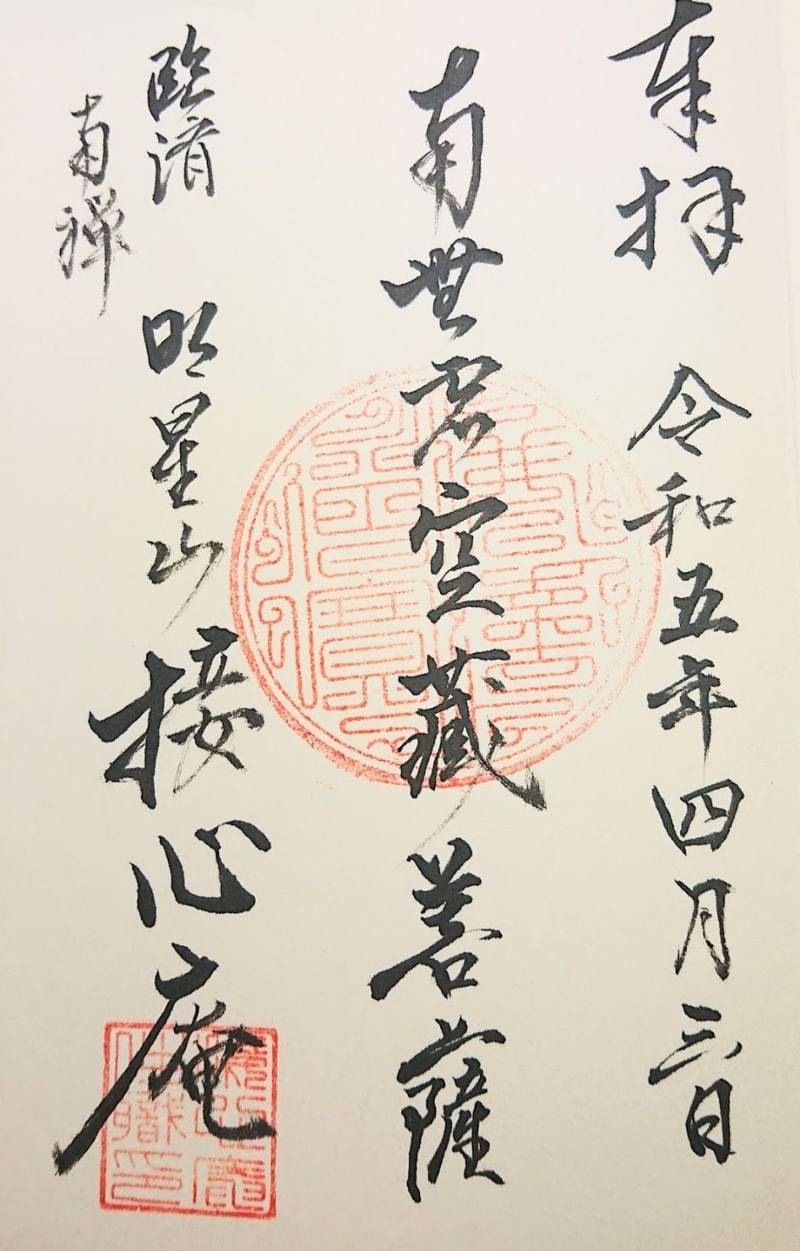 奉拝 令和五年四月三日
南無虚空藏菩薩
臨済
南禅
明星山 接心庵